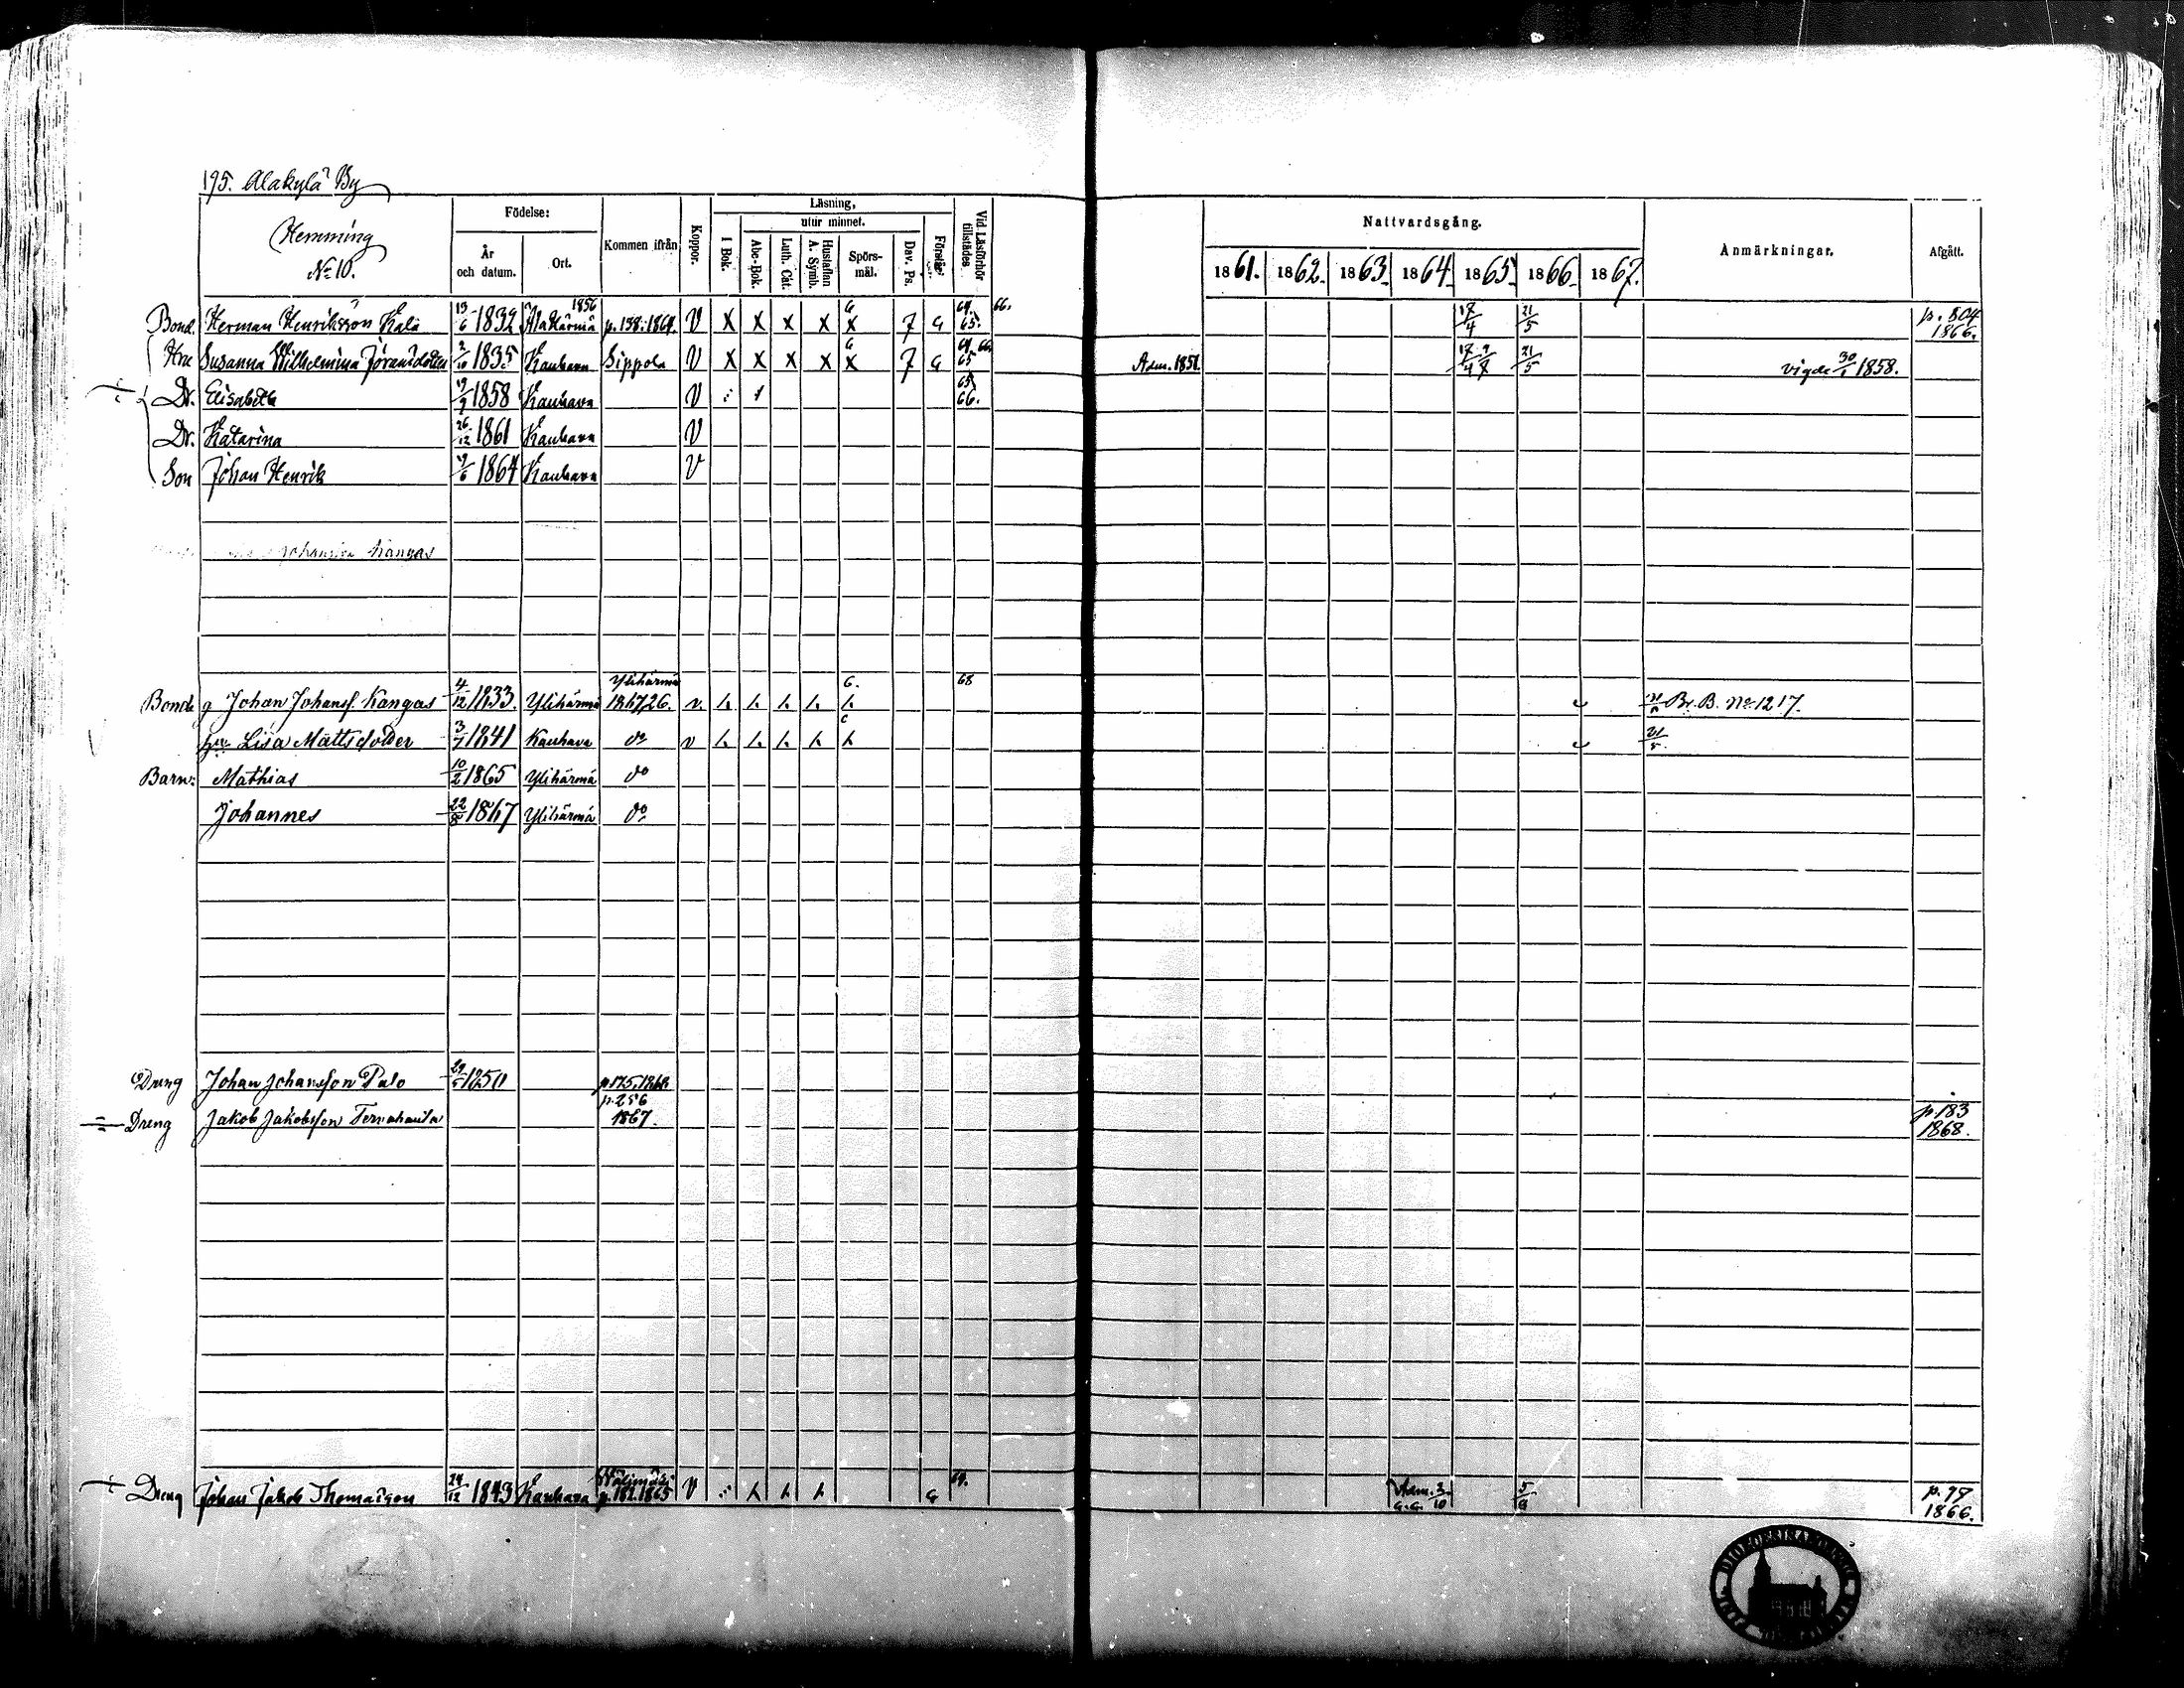 195. Alakylä By
Hemming
No 10.
Födelse:
År och datum.
Ort.
Kommen ifrån
Koppor.
Läsning,
utur minnet.
I Bok.
Abc-Bok.
Luth. Cat.
Hustaflan A. Symb.
Spörs-mål.
Dav. Ps.
Förstår
Vid Läsförhör tillstädes
Nattvardsgång.
1861. 1862. 1863. 1864. 1865. 1866. 1867.
Anmärkningar.
Afgått.
Bond. Herman Henriksson 13/6 1832 1856 Alahärmä p. 158. 1864. V X X X X G X 7 G 64. 65. 66. 21/5 p. 804 1866.
Hru Susanna Wilhelmina 1835 Kauhava Sippola V X X X X G X 7 G 64. 66 65 Adm. 1851. 21/5 vigde 30/1 1858.
Dr. Elisabeth 1858 Kauhava V 65 66.
Dr. Katarina 26/12 1861 Kauhava V
Son Johan Henrik 1864 Kauhava V
Kangas
Bonde g Johan Johanss. Kangas 4/12 1833. Ylihärmä Ylihärmä 1867,26. v. G. 68 Br. B. No 1217.
hu Lisa Mattsdotter 3/7 1841 Kauhava do v
Barn: Mathias 10/2 1865 Ylihärmä do
Johannes 22/8 1867 Ylihärmä do
Dreng Johan Johansson Palo 1850 p 175, 1868
Dreng Jakob Jakobsson p. 256 1867. p 183 1868.
Dreng Johan Jakob Thomasson 24/12 1843 Kauhava p. 182. 1865 V G 64. Adm. 2/10 p. 97 1866.